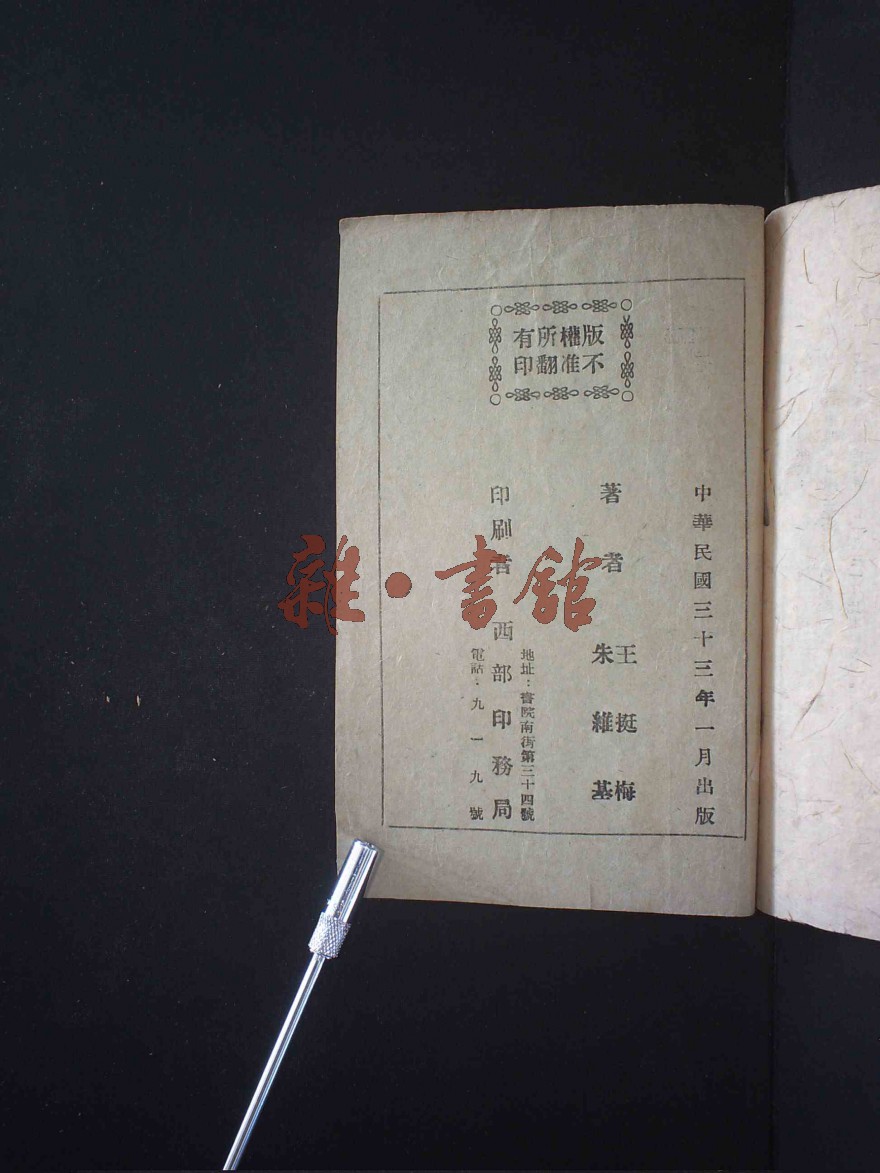 版權所有
不准翻印
中華民國三十三年一月出版
著者
王挺梅
朱維基
地址：書院南街第三十四號
印刷者 西部印務局
電話：九一九號
雜·書館